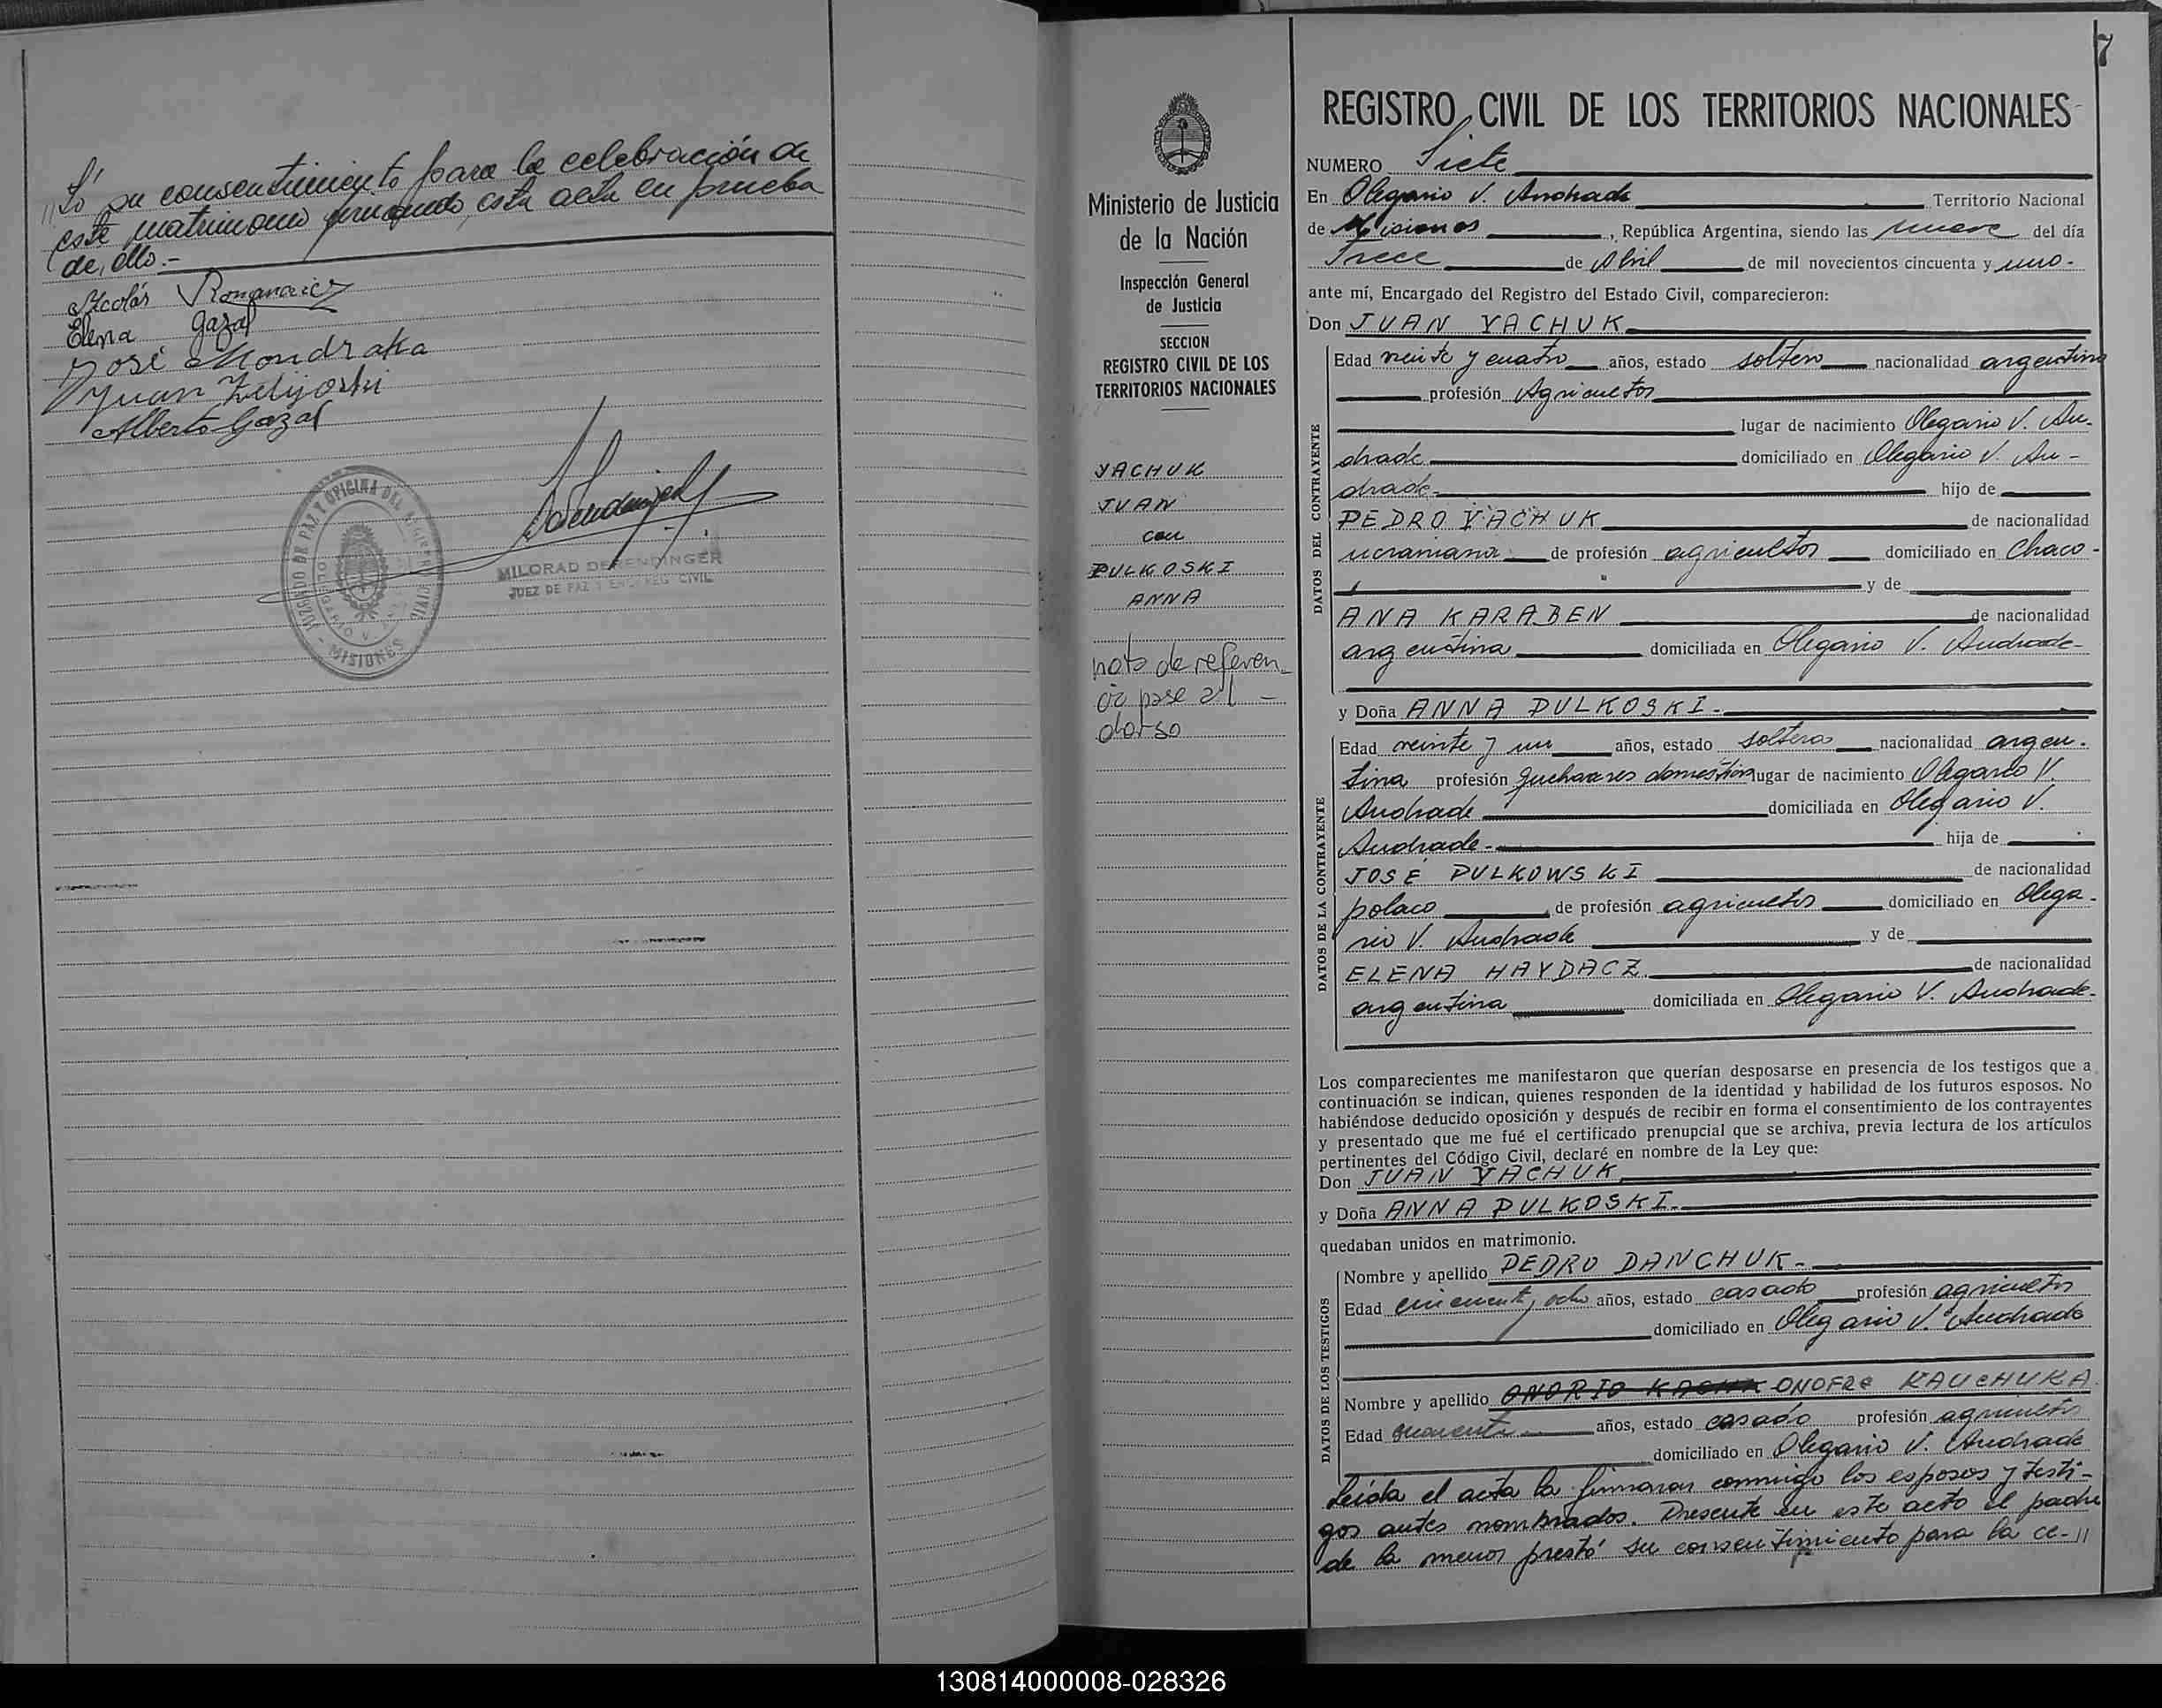 " tó su consentimiento para la celebración de
este matrimonio firmando esta acta en prueba
de ello.-
Nicolás Romanowicz
Elena Gazal
José Mondraka
Juan Zelijoski
Alberto Gazal
JUZGADO DE PAZ Y OFICINA DEL REGISTRO CIVIL
OLEGARIO V.
- MISIONES -
MILORAD DERENDINGER
JUEZ DE PAZ Y ENC. REG. CIVIL
Ministerio de Justicia
de la Nación
Inspección General
de Justicia
SECCION
REGISTRO CIVIL DE LOS
TERRITORIOS NACIONALES
YACHUK
JUAN
con
PULKOSKI
ANNA
nota de referen-
cia pase al -
dorso
7
REGISTRO CIVIL DE LOS TERRITORIOS NACIONALES
NUMERO Siete
En Olegario V. Andrade Territorio Nacional
de Misiones, República Argentina, siendo las nueve del día
Trece de Abril de mil novecientos cincuenta y uno.
ante mí, Encargado del Registro del Estado Civil, comparecieron:
Don JUAN YACHUK
DATOS DEL CONTRAYENTE
Edad veinte y cuatro años, estado soltero nacionalidad argentino
profesión Agricultor
lugar de nacimiento Olegario V. An-
drade domiciliado en Olegario V. An-
drade- hijo de
PEDRO YACHUK de nacionalidad
ucraniana de profesión agricultor domiciliado en Chaco-
y de
ANA KARABEN de nacionalidad
argentina domiciliada en Olegario V. Andrade-
y Doña ANNA PULKOSKI.
DATOS DE LA CONTRAYENTE
Edad veinte y un años, estado soltera nacionalidad argen-
tina profesión quehaceres domésticos lugar de nacimiento Olegario V.
Andrade domiciliada en Olegario V.
Andrade- hija de
JOSÉ PULKOWSKI de nacionalidad
polaco de profesión agricultor domiciliado en Olega-
rio V. Andrade y de
ELENA HAYDACZ de nacionalidad
argentina domiciliada en Olegario V. Andrade-
Los comparecientes me manifestaron que querían desposarse en presencia de los testigos que a
continuación se indican, quienes responden de la identidad y habilidad de los futuros esposos. No
habiéndose deducido oposición y después de recibir en forma el consentimiento de los contrayentes
y presentado que me fué el certificado prenupcial que se archiva, previa lectura de los artículos
pertinentes del Código Civil, declaré en nombre de la Ley que:
Don JUAN YACHUK
y Doña ANNA PULKOSKI.
quedaban unidos en matrimonio.
DATOS DE LOS TESTIGOS
Nombre y apellido PEDRO DANCHUK-
Edad cincuenta y ocho años, estado casado profesión agricultor
domiciliado en Olegario V. Andrade
Nombre y apellido ONOFRE KAUCHUKA
Edad cuarenta años, estado casado profesión agricultor
domiciliado en Olegario V. Andrade
Leída el acta la firmaron conmigo los esposos y testi-
gos antes nombrados. Presente en este acto el padre
de la menor prestó su consentimiento para la ce-"
130814000008-028326